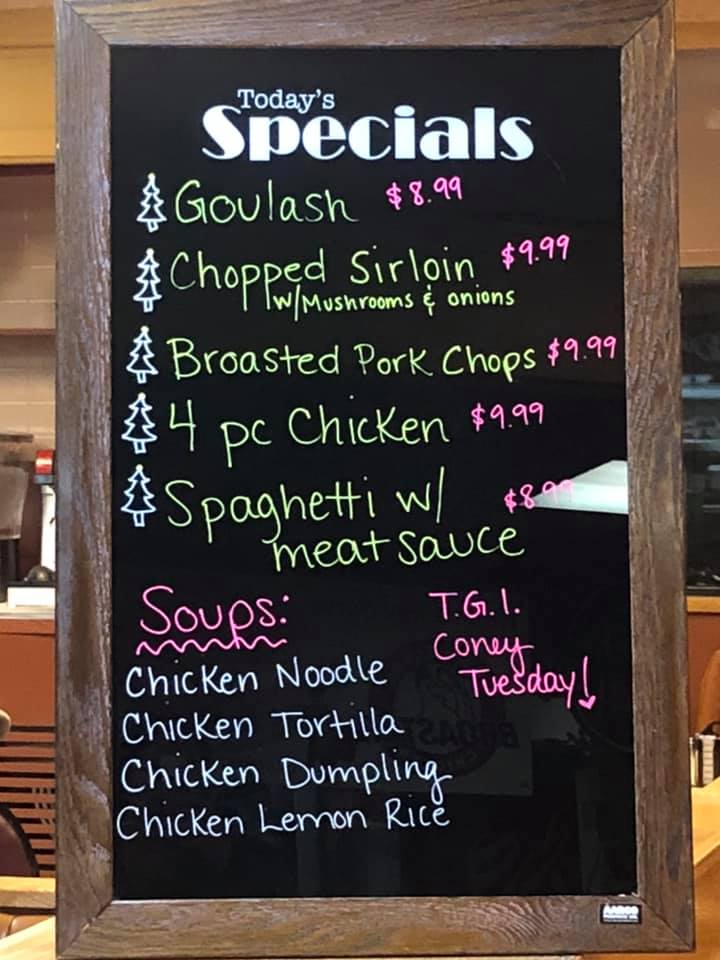 Today's
Specials
Goulash $8.99
Chopped Sirloin $9.99
w/Mushrooms & onions
Broasted Pork Chops $9.99
4 pc Chicken $9.99
Spaghetti w/ $8.99
meat sauce
Soups:
Chicken Noodle
Chicken Tortilla
Chicken Dumpling
Chicken Lemon Rice
T.G.I.
Coney
Tuesday!